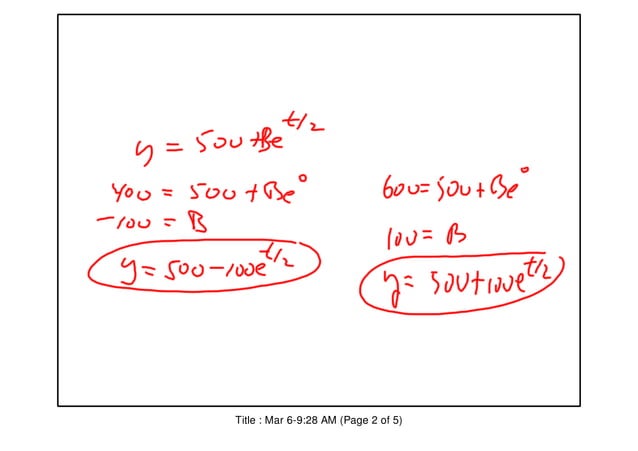 y = 500 + Be^{t/2}
400 = 500 + Be^0
-100 = B
y = 500 - 100e^{t/2}
600 = 500 + Be^0
100 = B
y = 500 + 100e^{t/2}
Title : Mar 6-9:28 AM (Page 2 of 5)